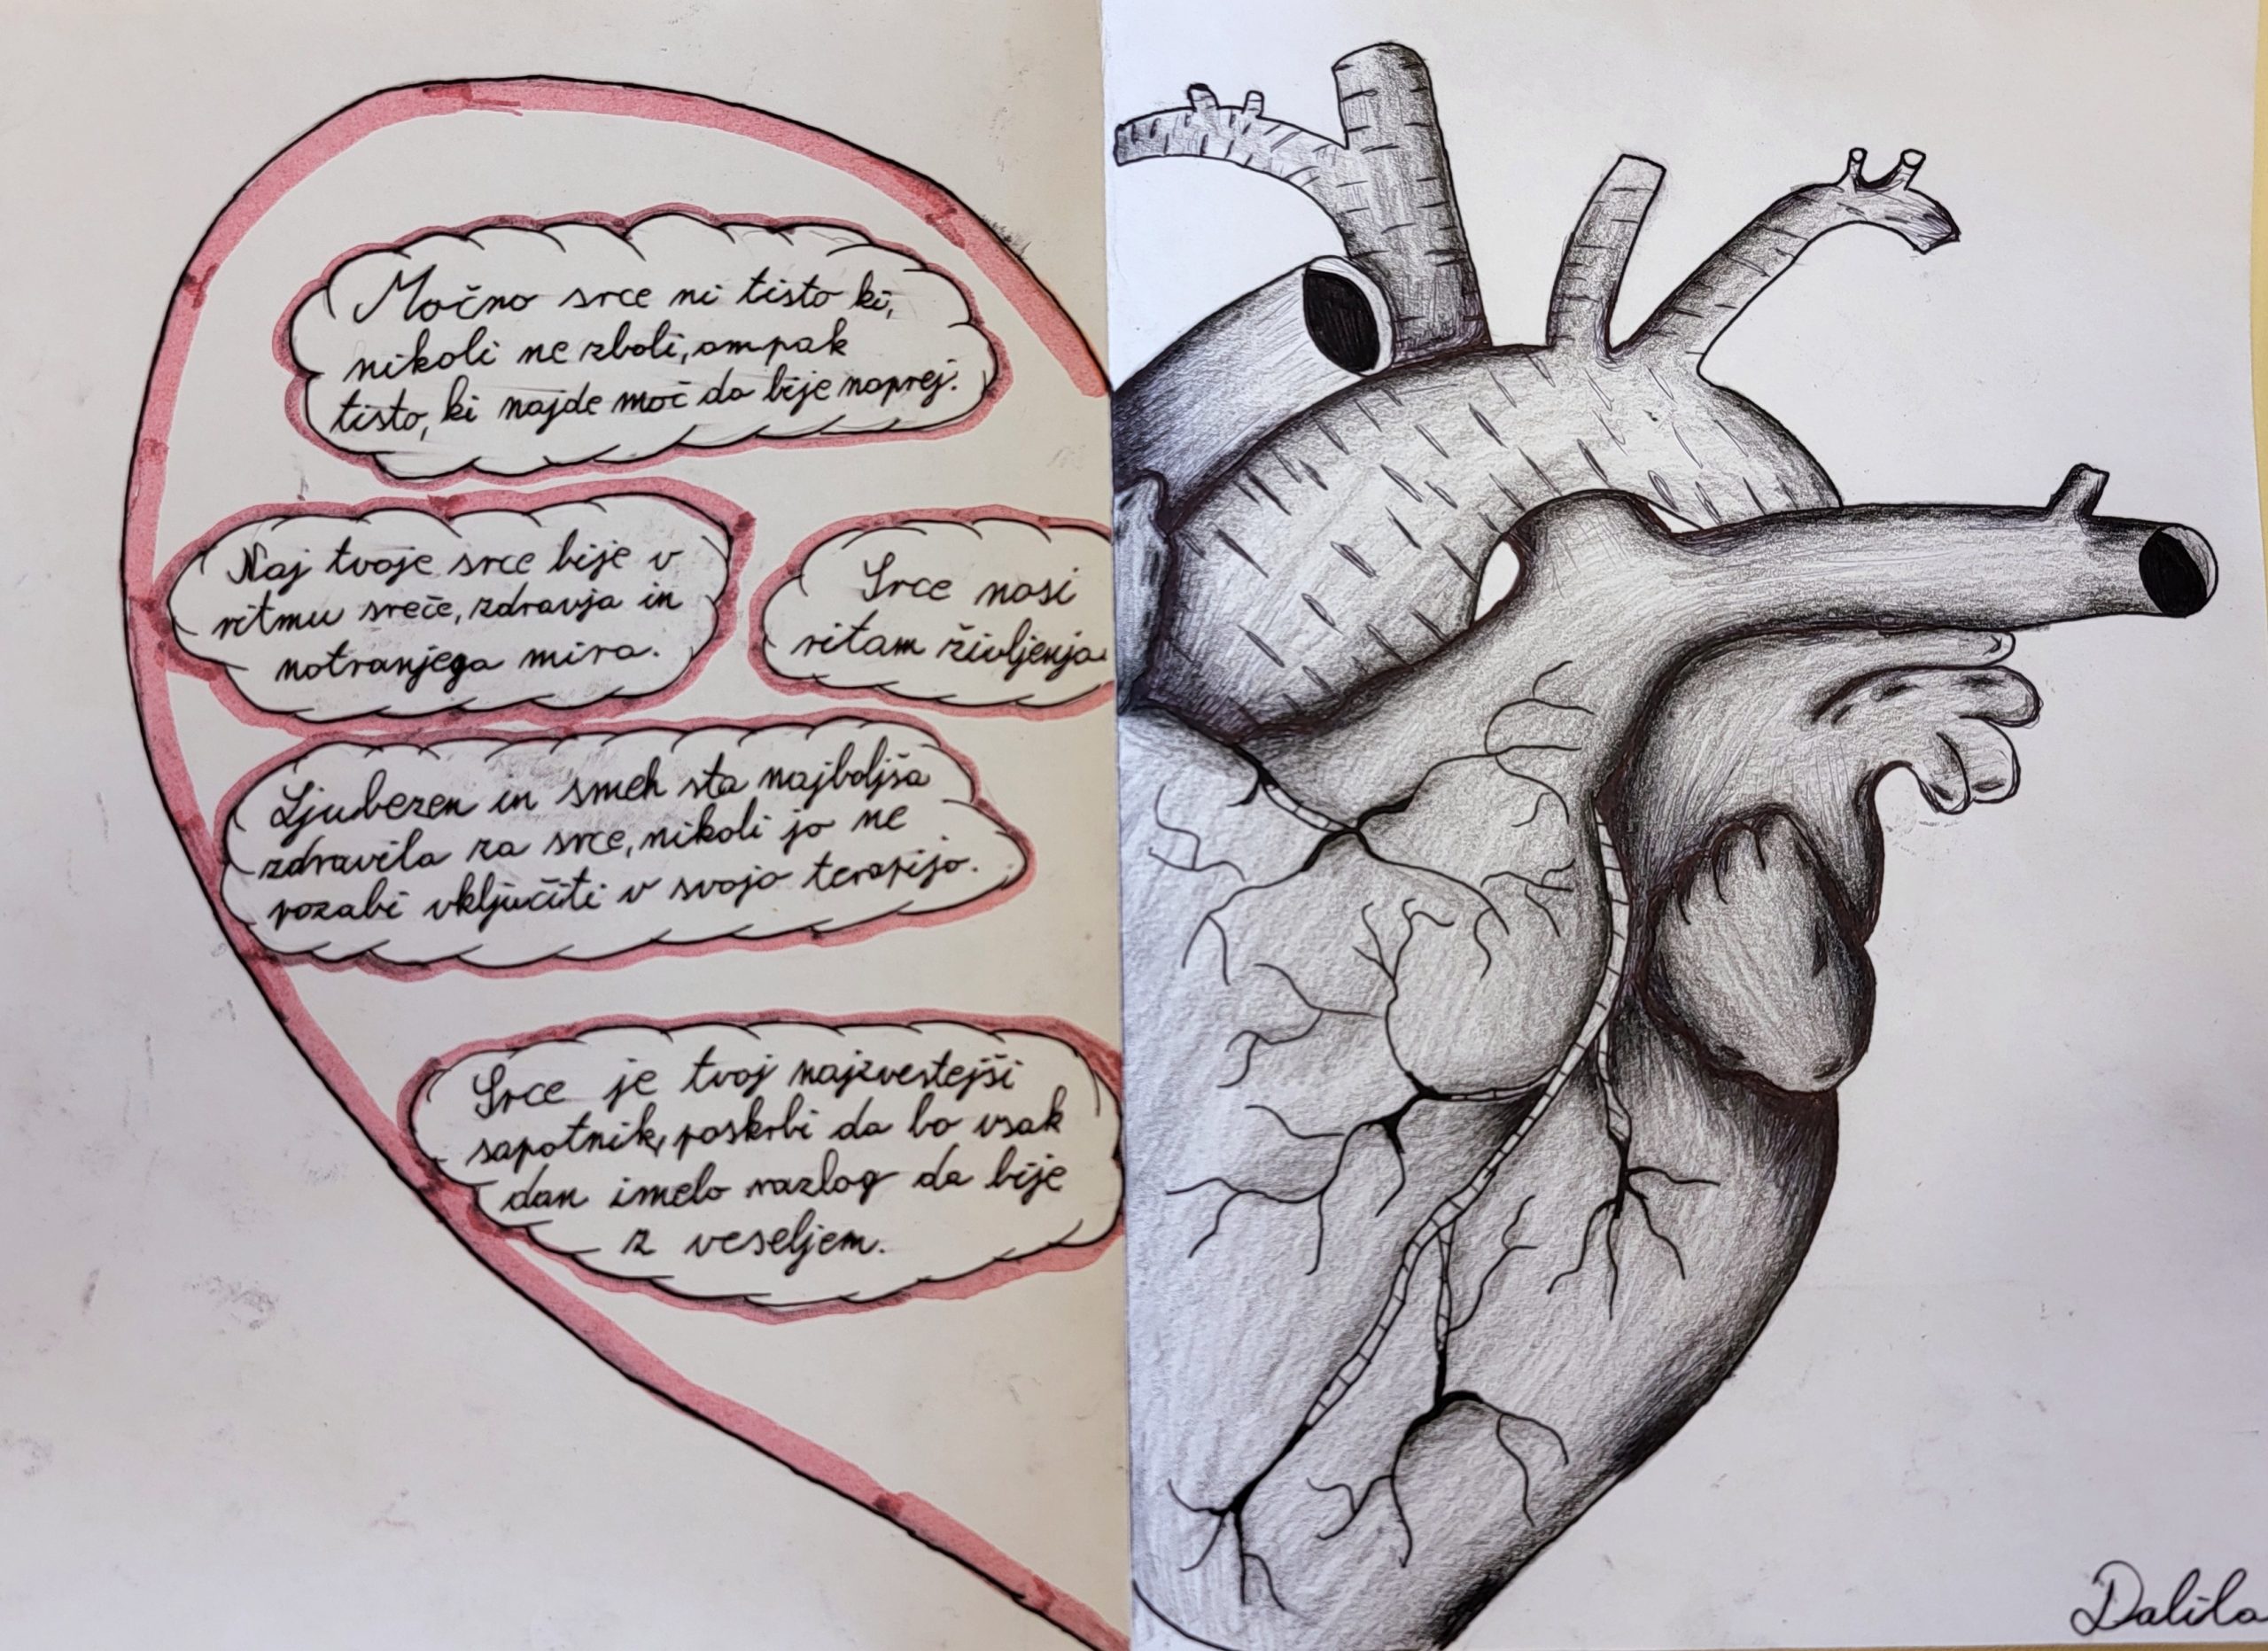 Močno srce ni tisto ki,
nikoli ne zboli, ampak
tisto, ki najde moč da bije naprej.
Naj tvoje srce bije v
ritmu sreče, zdravja in
notranjega mira.
Srce nosi
ritam življenja.
Ljubezen in smeh sta najboljša
zdravila za srce, nikoli jo ne
pozabi vključiti v svojo terapijo.
Srce je tvoj najzvestejši
sapotnik, poskrbi da bo vsak
dan imelo razlog da bije
z veseljem.
Dalila